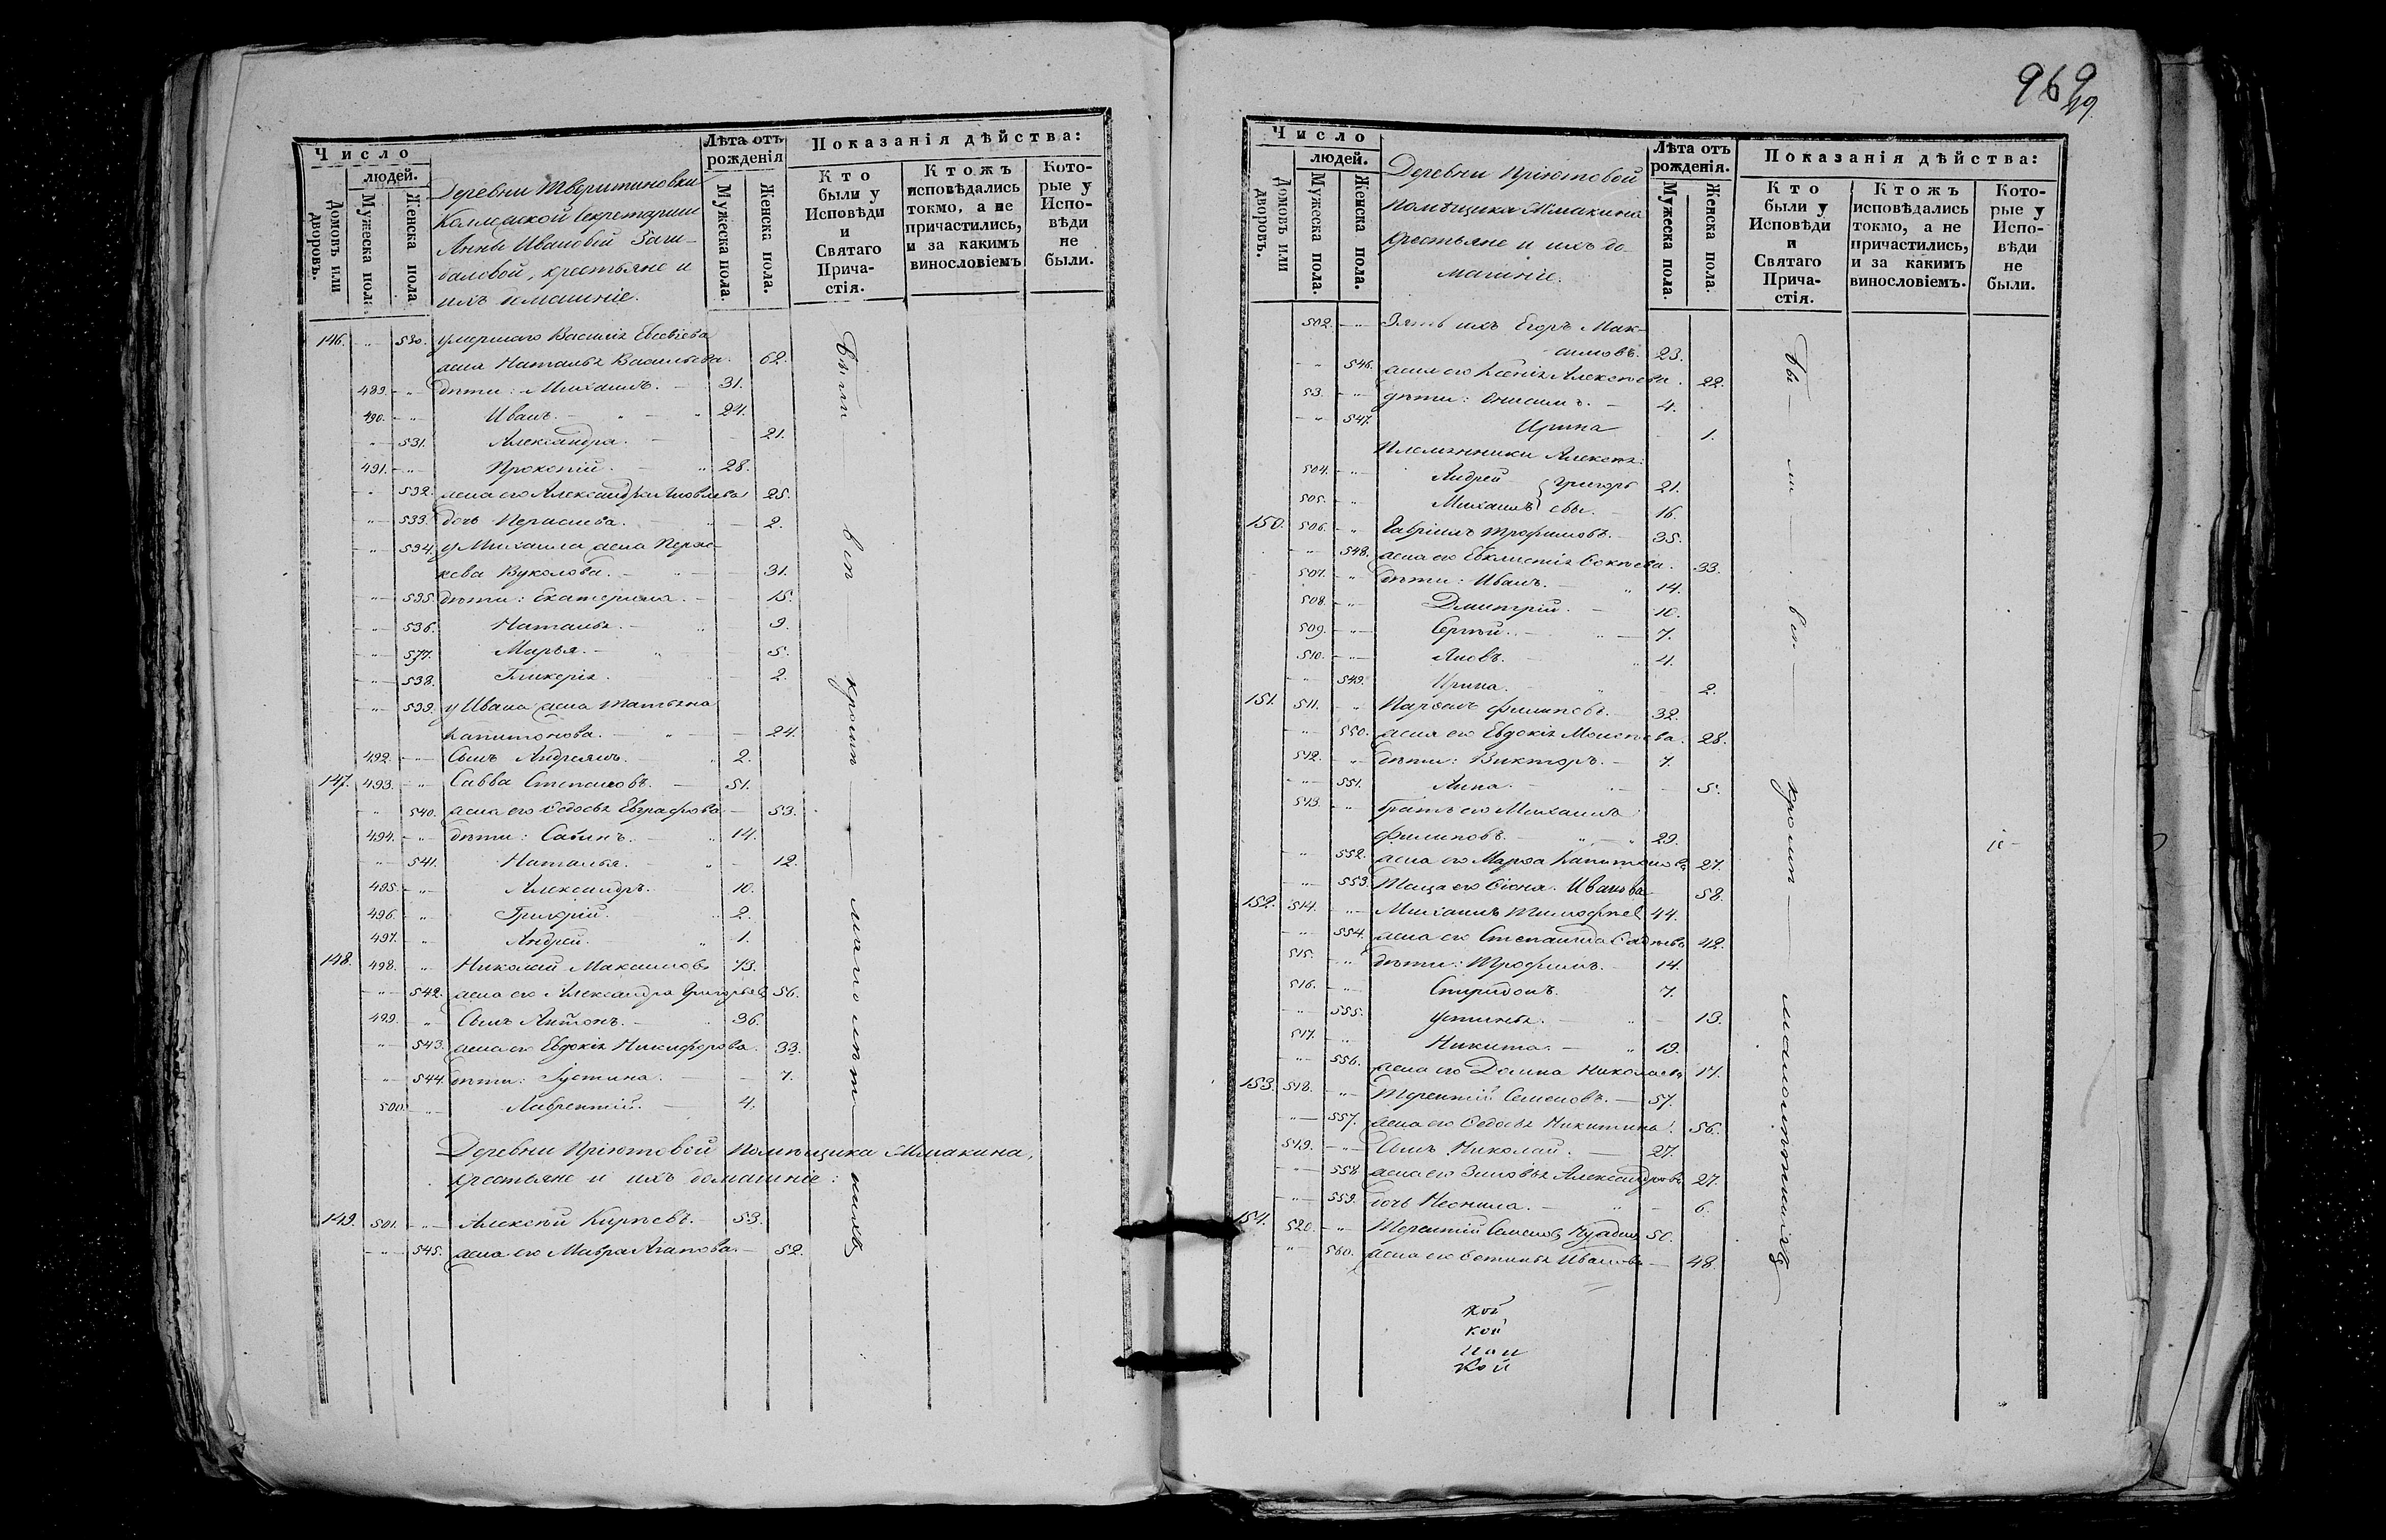 Число
людей.
Домовъ или дворовъ.
Мужеска пола.
Женска пола
Деревни Тверитиновки
Коллежской Секретарши
Анны Ивановой
крестьяне и
ихъ домашніе.
Лѣта отъ рожденія
Мужеска пола.
Женска пола.
Показанія дѣйства:
Кто были у Исповѣди и Святаго Прича-стія.
Ктожъ исповѣдались токмо, а не причастились, и за какимъ винословіемъ
Кото-рые у Испо-вѣди не были.
146. " 530. умершаго Василія Евсевіева
жена Наталья Васильева. 62.
489. " дѣти: Михаилъ. 31.
490. " Иванъ. 24.
" 531. Александра. 21.
491. " Прокопій. 28.
" 532. жена его Александра Яковлева 25.
" 533. дочь Параскева. 2.
" 534. у Михаила жена
Вуколова. 31.
" 535. дѣти: Екатерина. 15.
" 536. Наталья. 9.
" 537. Марья. 5.
" 538. Гликерія. 2.
" 539. у Ивана жена Татьяна
Капитонова. 24.
492. " Сынъ Андреянъ. 2.
147. 493. " Савва Степановъ. 51.
" 540. жена его Ѳедосья Евграфова 53.
494. " дѣти: Савинъ. 14.
" 541. Наталья. 12.
495. " Александръ. 10.
496. " Григорій. 2.
497. " Андрей. 1.
148. 498. " Николай Максимовъ 73.
" 542. жена его Александра Григорьева 56.
499. " Сынъ Антонъ. 36.
" 543. жена его Евдокія Никифорова. 33.
" 544. дѣти: Іустина. 7.
500. " Лаврентій. 4.
Деревни Пріютовой Помѣщика
крестьяне и ихъ домашніе:
149. 501. " Алексѣй Кирѣевъ. 53.
" 545. жена его Мавра Агапова. 52.
Были всѣ кромѣ малолѣтнихъ
969
Число
людей.
Домовъ или дворовъ.
Мужеска пола.
Женска пола.
Деревни Пріютовой
Помѣщика
крестьяне и ихъ до-
машніе.
Лѣта отъ рожденія.
Мужеска пола.
Женска пола.
Показанія дѣйства:
Кто были у Исповѣди и Святаго Прича-стія.
Ктожъ исповѣдались токмо, а не причастились, и за какимъ винословіемъ.
Кото-рые у Испо-вѣди не были.
502. " Зять ихъ Егоръ Мак-
симовъ. 23.
" 546. жена его Ксенія Алексѣева. 22.
53. " дѣти: Онисимъ. 4.
" 547. Ирина 1.
Племянники Алексѣя:
504. " Андрей Григорь 21.
505. " Михаилъ евы. 16.
150. 506. " Гавріилъ Трофимовъ. 35.
" 548. жена его 33.
507. " дѣти: Иванъ. 14.
508. " Дмитрій. 10.
509. " Сергѣй. 7.
510. " Яковъ. 4.
" 549. Ирина. 2.
151. 511. " Филиповъ. 32.
" 550. жена его Евдокія Моисѣева. 28.
512. " дѣти: Викторъ. 7.
" 551. Анна. 5.
513. " братъ его Михаилъ
Филиповъ. 29.
" 552. жена его Марѳа Капитонова 27.
" 553. Теща его Иванова 58.
152. 514. " Михаилъ Тимофѣев 44.
" 554. жена его Степанида 42.
515. " дѣти: Трофимъ. 14.
516. " Спиридонъ. 7.
" 555. Устинья. 13.
517. " Никита. 19.
" 556. жена его Домна Николаева 17.
153. 518. " Терентій Семеновъ. 57.
" 557. жена его Ѳедосья Никитина. 56.
519. " Сынъ Николай. 27.
" 558. жена его Зиновья Александрова 27.
" 559. дочь Неонила. 6.
154. 520. " Терентій Семеновъ 50.
" 560. жена его Иванова 48.
Бы ли всѣ кромѣ малолѣтнихъ
кой
кой
кой